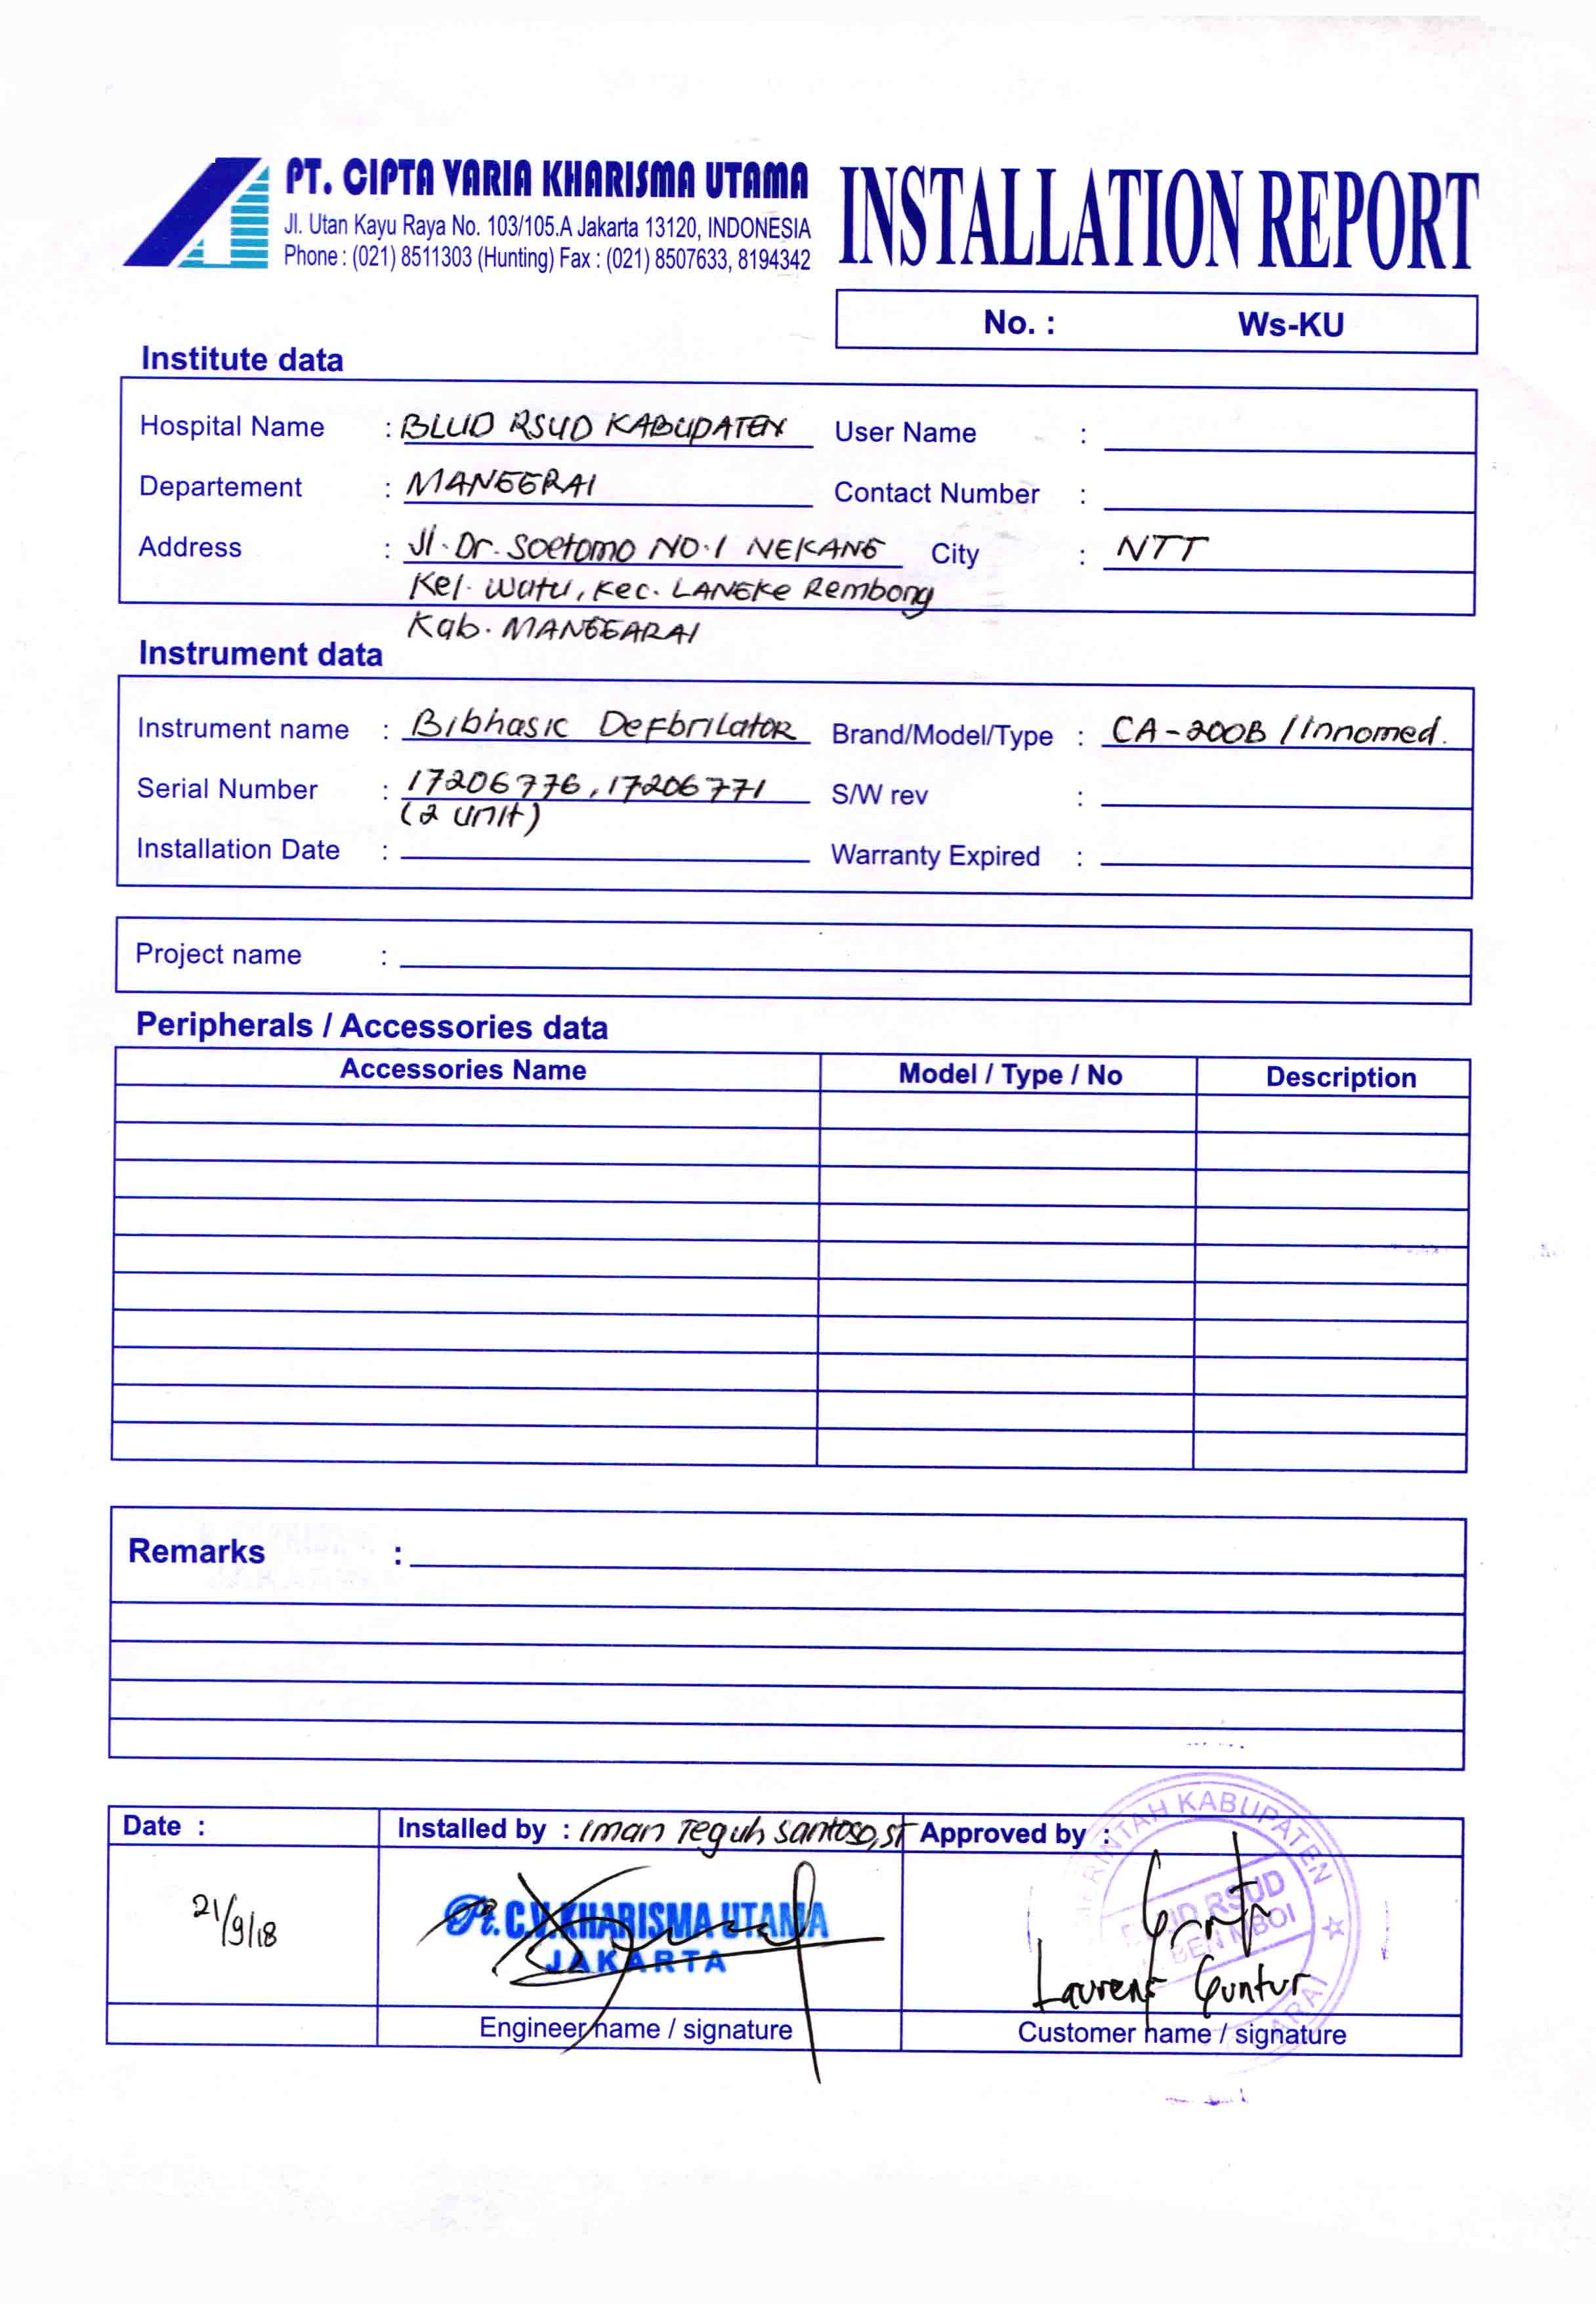 PT. CIPTA VARIA KHARISMA UTAMA
Jl. Utan Kayu Raya No. 103/105.A Jakarta 13120, INDONESIA
Phone : (021) 8511303 (Hunting) Fax : (021) 8507633, 8194342
INSTALLATION REPORT
No. : Ws-KU
Institute data
Hospital Name : BLUD RSUD KABUPATEN User Name :
Departement : MANGGRAI Contact Number :
Address : Jl. Dr. Soetomo NO.1 NEKANG City : NTT
Kel. Watu, Kec. LANGKe Rembong
Kab. MANGGARAI
Instrument data
Instrument name : Bibhasic Defbrilator Brand/Model/Type : CA-200B / Innomed.
Serial Number : 17206776, 17206771 S/W rev :
(2 unit)
Installation Date : Warranty Expired :
Project name :
Peripherals / Accessories data
Accessories Name Model / Type / No Description
Remarks :
Date : Installed by : Iman Teguh Santoso, ST Approved by :
21/9/18
Pt. C.V. KHARISMA UTAMA
JAKARTA
KABUPATEN
RSUD
BEN MBOI
Laurens Guntur
Engineer name / signature Customer name / signature